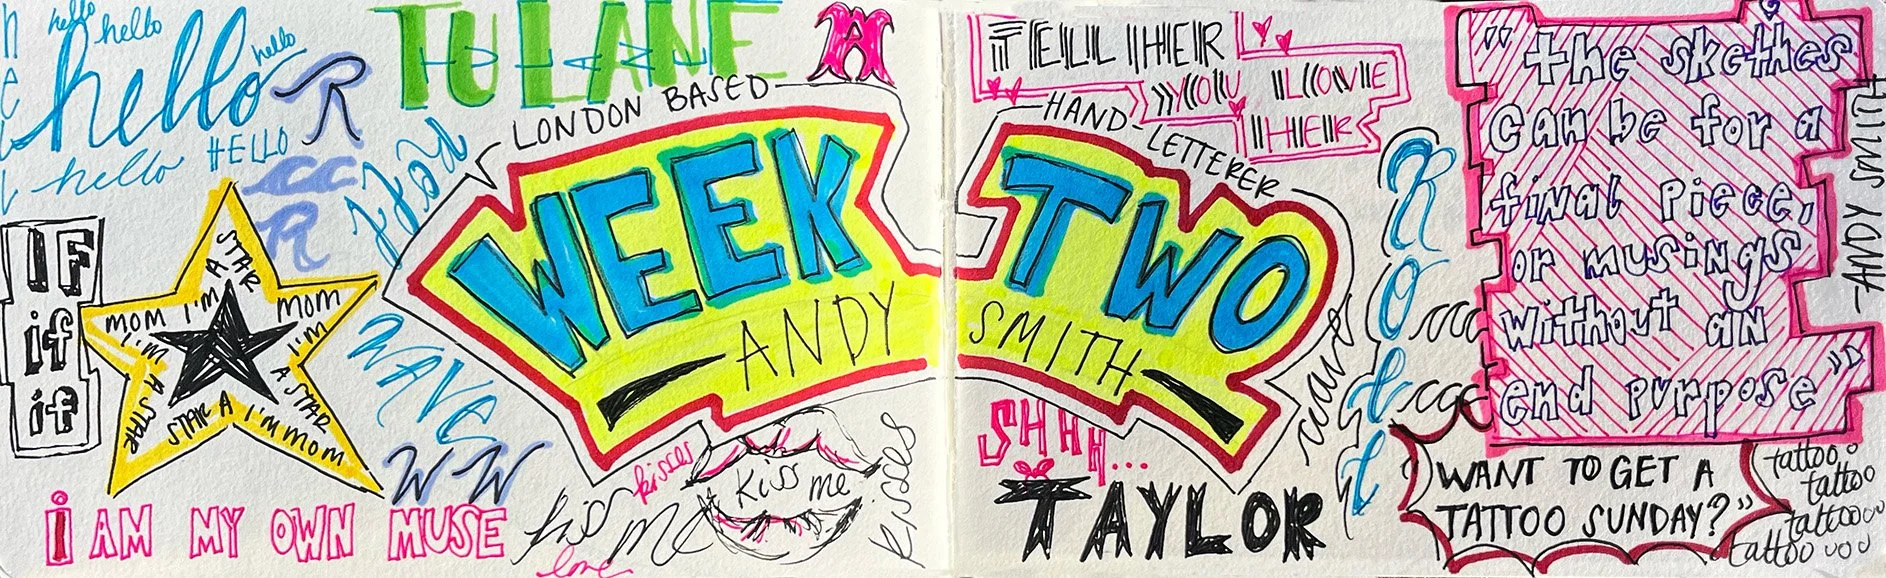 hello
hello
hello
hello
hello
HELLO
hello
R
R
TULANE
A
LONDON BASED
WEEK
ANDY
HAND-LETTERER
TWO
SMITH
TELL HER
YOU LOVE
HER
"the skethes
can be for a
final piece,
or musings
without an
end purpose"
-ANDY SMITH
IF
if
if
MOM I'M A STAR
MOM I'M A STAR
MOM I'M A STAR
WAVE
W W
I AM MY OWN MUSE
kiss me
kisses
love
Kiss me
kisses
SHHH...
TAYLOR
WANT TO GET A
TATTOO SUNDAY?"
tattoo
tattoo
tattoooo
tattoo